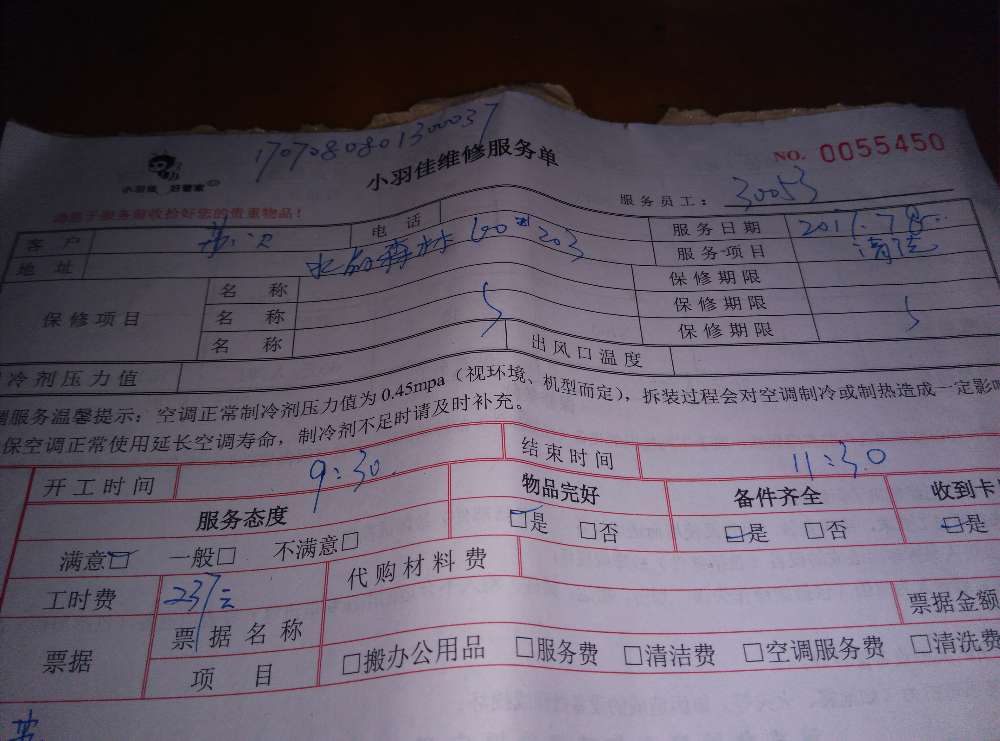 1707080801300037
小羽佳维修服务单
NO. 0055450
小羽佳 好管家
服务员工： 30053
请您于服务前收拾好您的贵重物品！
客 户 电 话 服务日期 2017.7.8
地 址 水的森林 60 203 服务项目 清洗
保修项目 名 称 保修期限
名 称 保修期限
名 称 保修期限
冷剂压力值 出风口温度
服务温馨提示：空调正常制冷剂压力值为 0.45mpa（视环境、机型而定），拆装过程会对空调制冷或制热造成一定影
保空调正常使用延长空调寿命，制冷剂不足时请及时补充。
开工时间 9:30 结束时间 11:30
服务态度 物品完好 备件齐全 收到卡
满意□ 一般□ 不满意□ □是 □否 □是 □否 □是
工时费 237元 代购材料费
票据 票据名称 票据金额
项 目 □搬办公用品 □服务费 □清洁费 □空调服务费 □清洗费